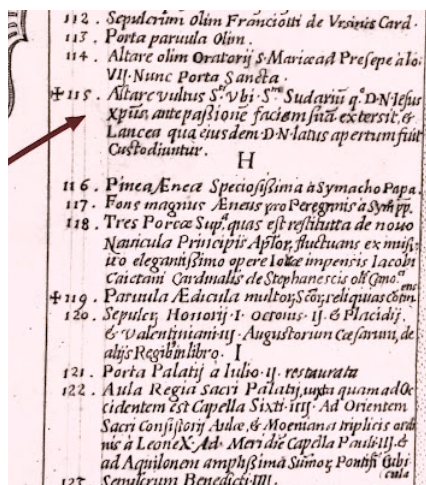 112. Sepulcrum olim Franciotti de Vrsinis Card.
113. Porta paruula Olim.
114. Altare olim Oratorij S. Mariæ ad Presepe à Io:
VIJ. Nunc Porta Sancta.
✠115. Altare vultus S.ti vbi S.mū Sudariū q.o D.N. Iesus
Xpūs, ante paßione faciem suā extersit, &
Lancea qua eiusdem D.N. latus apertum fuit
Custodiuntur.
H
116. Pinea Ænea Speciosißima à Symacho Papa.
117. Fons magnus Æneus pro Peregrinis à Sym pp.
118. Tres Porcæ Sup. quas est restitutta de nouo
Nauicula Principis Aptor, fluctuans ex musi,
uo elegantißimo opere impensis Iacobi
Caietani Cardinalis de Stephanescis
✠119. Paruula Ædicula multor, Scōr, reliquas
120. Sepulcr, Honorij. I. Octonis. IJ. & Placidij.
& Valentiniani. IIJ. Augustorum Cæsarum, de
alijs Regib, in libro. I
121. Porta Palatij a Iulio. IJ. restaurata
122. Aula Regia Sacri Palatij, iuxta quam ad Oc
cidentem est Capella Sixti. IIIJ. Ad Orientem
Sacri Consistorij Aulæ, & Moeniana triplicis ordi
nis à Leone X. Ad Meridiē Capella Pauli. IIJ. &
ad Aquilonem amplißima Sūmor, Pontifi Cubi
cula
123. Sepulcrum Benedicti. IIII.